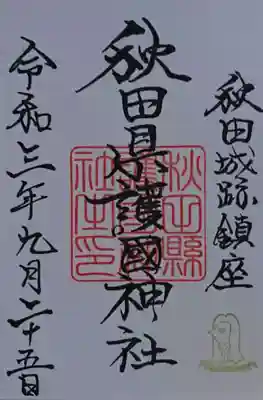 秋田城跡鎮座
秋田県護國神社
令和三年九月二十五日
秋田縣
社之印